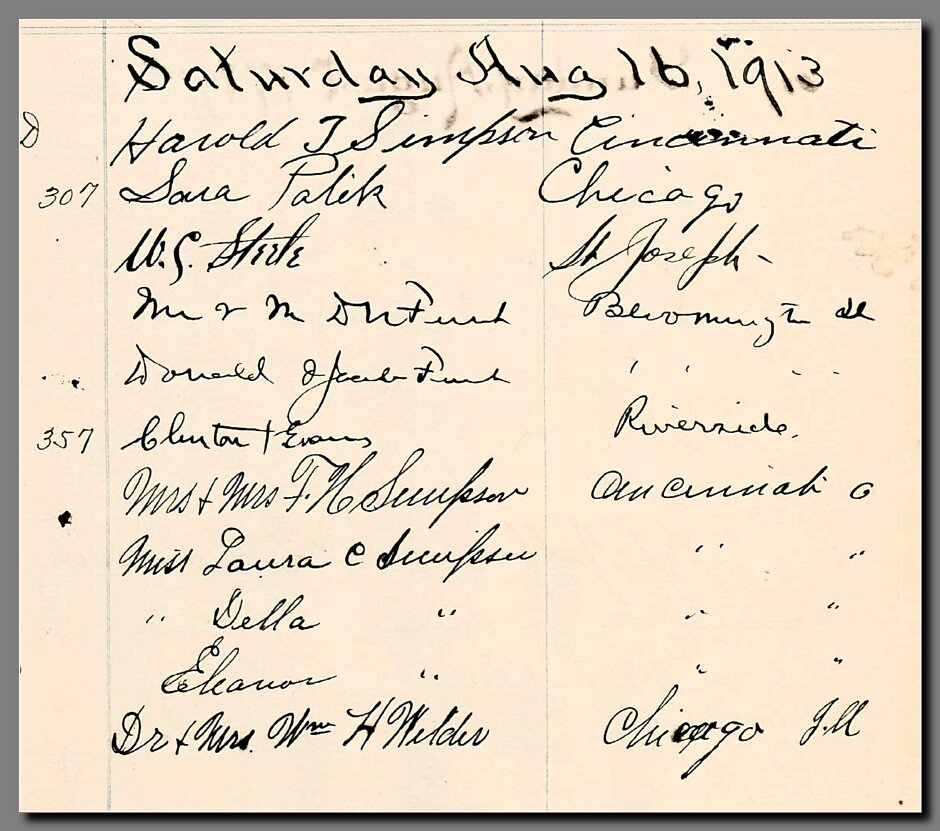 Saturday Aug 16, 1913
D Harold J Simpson Cincinnati
307 Sara Palik Chicago
W. G. Steele St Joseph -
Mr & M D N Funk Bloomington Ill
Donald & Jacob Funk " "
357 Clinton Evans Riverside.
Mrs & Mrs F. H Simpson Cincinnati O
Miss Laura C Simpson " "
" Della " " "
Eleanor " " "
Dr & Mrs. Wm H Wilder Chicago Ill